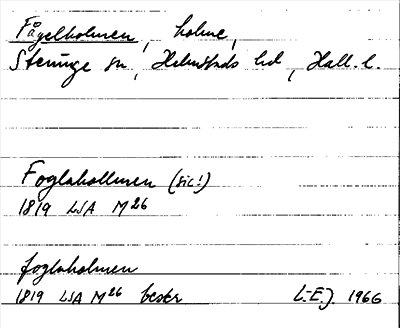 Fågelholmen, holme,
Steninge sn, Halmstads hd, Hall. l.
Foglahollmen (sic!)
1819 LSA M26
foglaholmen
1819 LSA M26 beskr
L-E.J. 1966